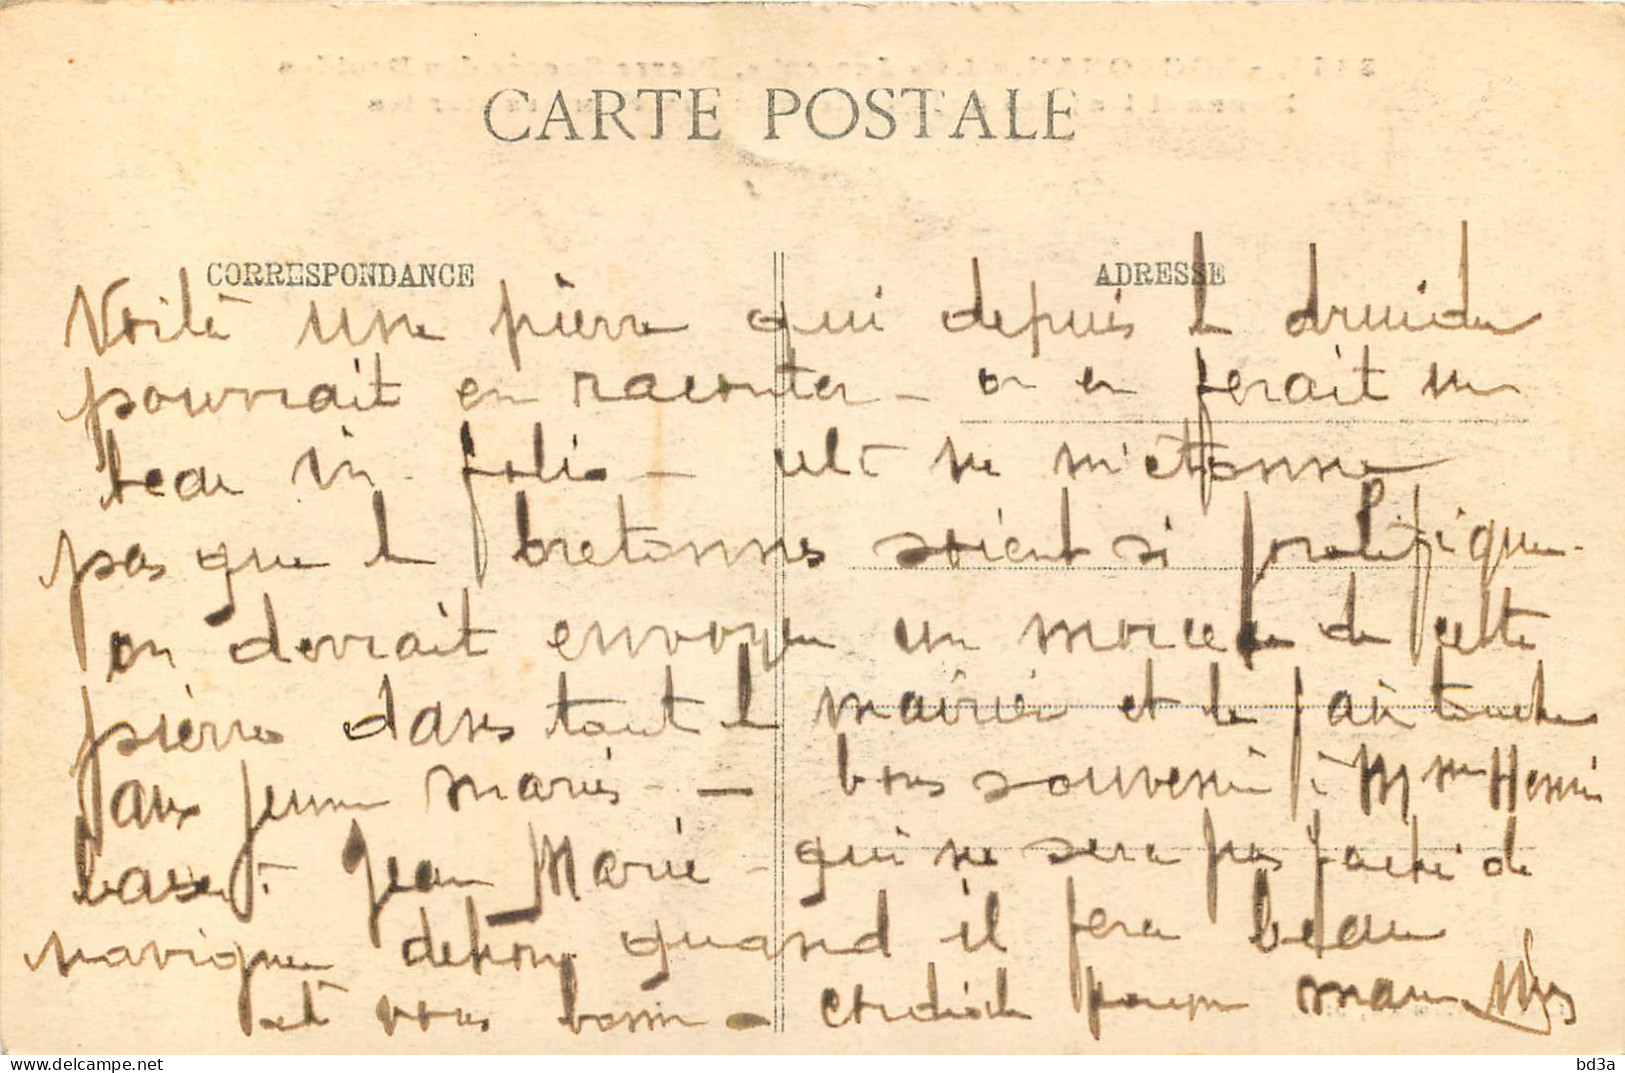 CARTE POSTALE
CORRESPONDANCE
ADRESSE
Voilà une pierre qui depuis le druides
pourrait en raconter - on en ferait un
beau in-folio - cela ne m'étonne
pas que le bretonnes soient si prolifiques.
on devrait envoyer un morceau de cette
pierre dans tout le mairies et le faire toucher
aux jeunes mariés - bons souvenir à Mme
Jean Marie - qui ne sera pas faché de
naviguer dehors quand il fera beau
et vous
bd3a